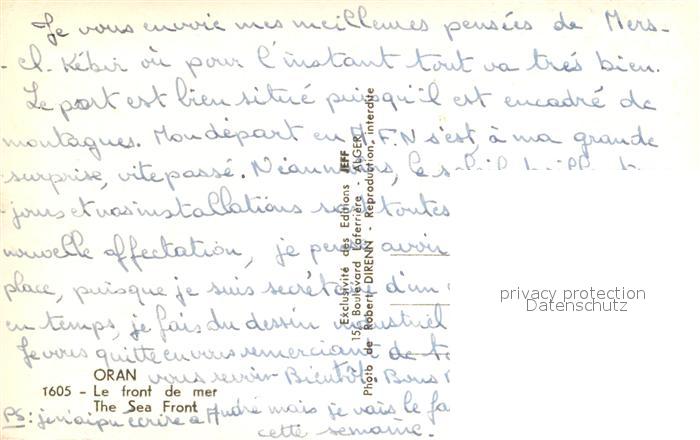 Je vous envoie mes meilleures pensées de Mers-
-el-Kébir où pour l'instant tout va très bien.
Le port est bien situé puisqu'il est encadré de
montagnes. Mon départ en A.F.N s'est, à ma grande
surprise, vite passé. Néanmoins, le soleil brille
jours et nos installations sont toutes
nouvelle affectation, je pense avoir
place, puisque je suis secrétaire d'un
en temps, je fais du dessin industriel
Je vous quitte en vous remerciant de
vous revoir Bientôt. Bons
PS: je n'ai pu écrire à André mais je vais le
cette semaine.
ORAN
1605 - Le front de mer
The Sea Front
Exclusivité des Editions JEFF
15, Boulevard Laferrière - ALGER
Photo de Roberte DIRENN - Reproduction interdite
privacy protection
Datenschutz